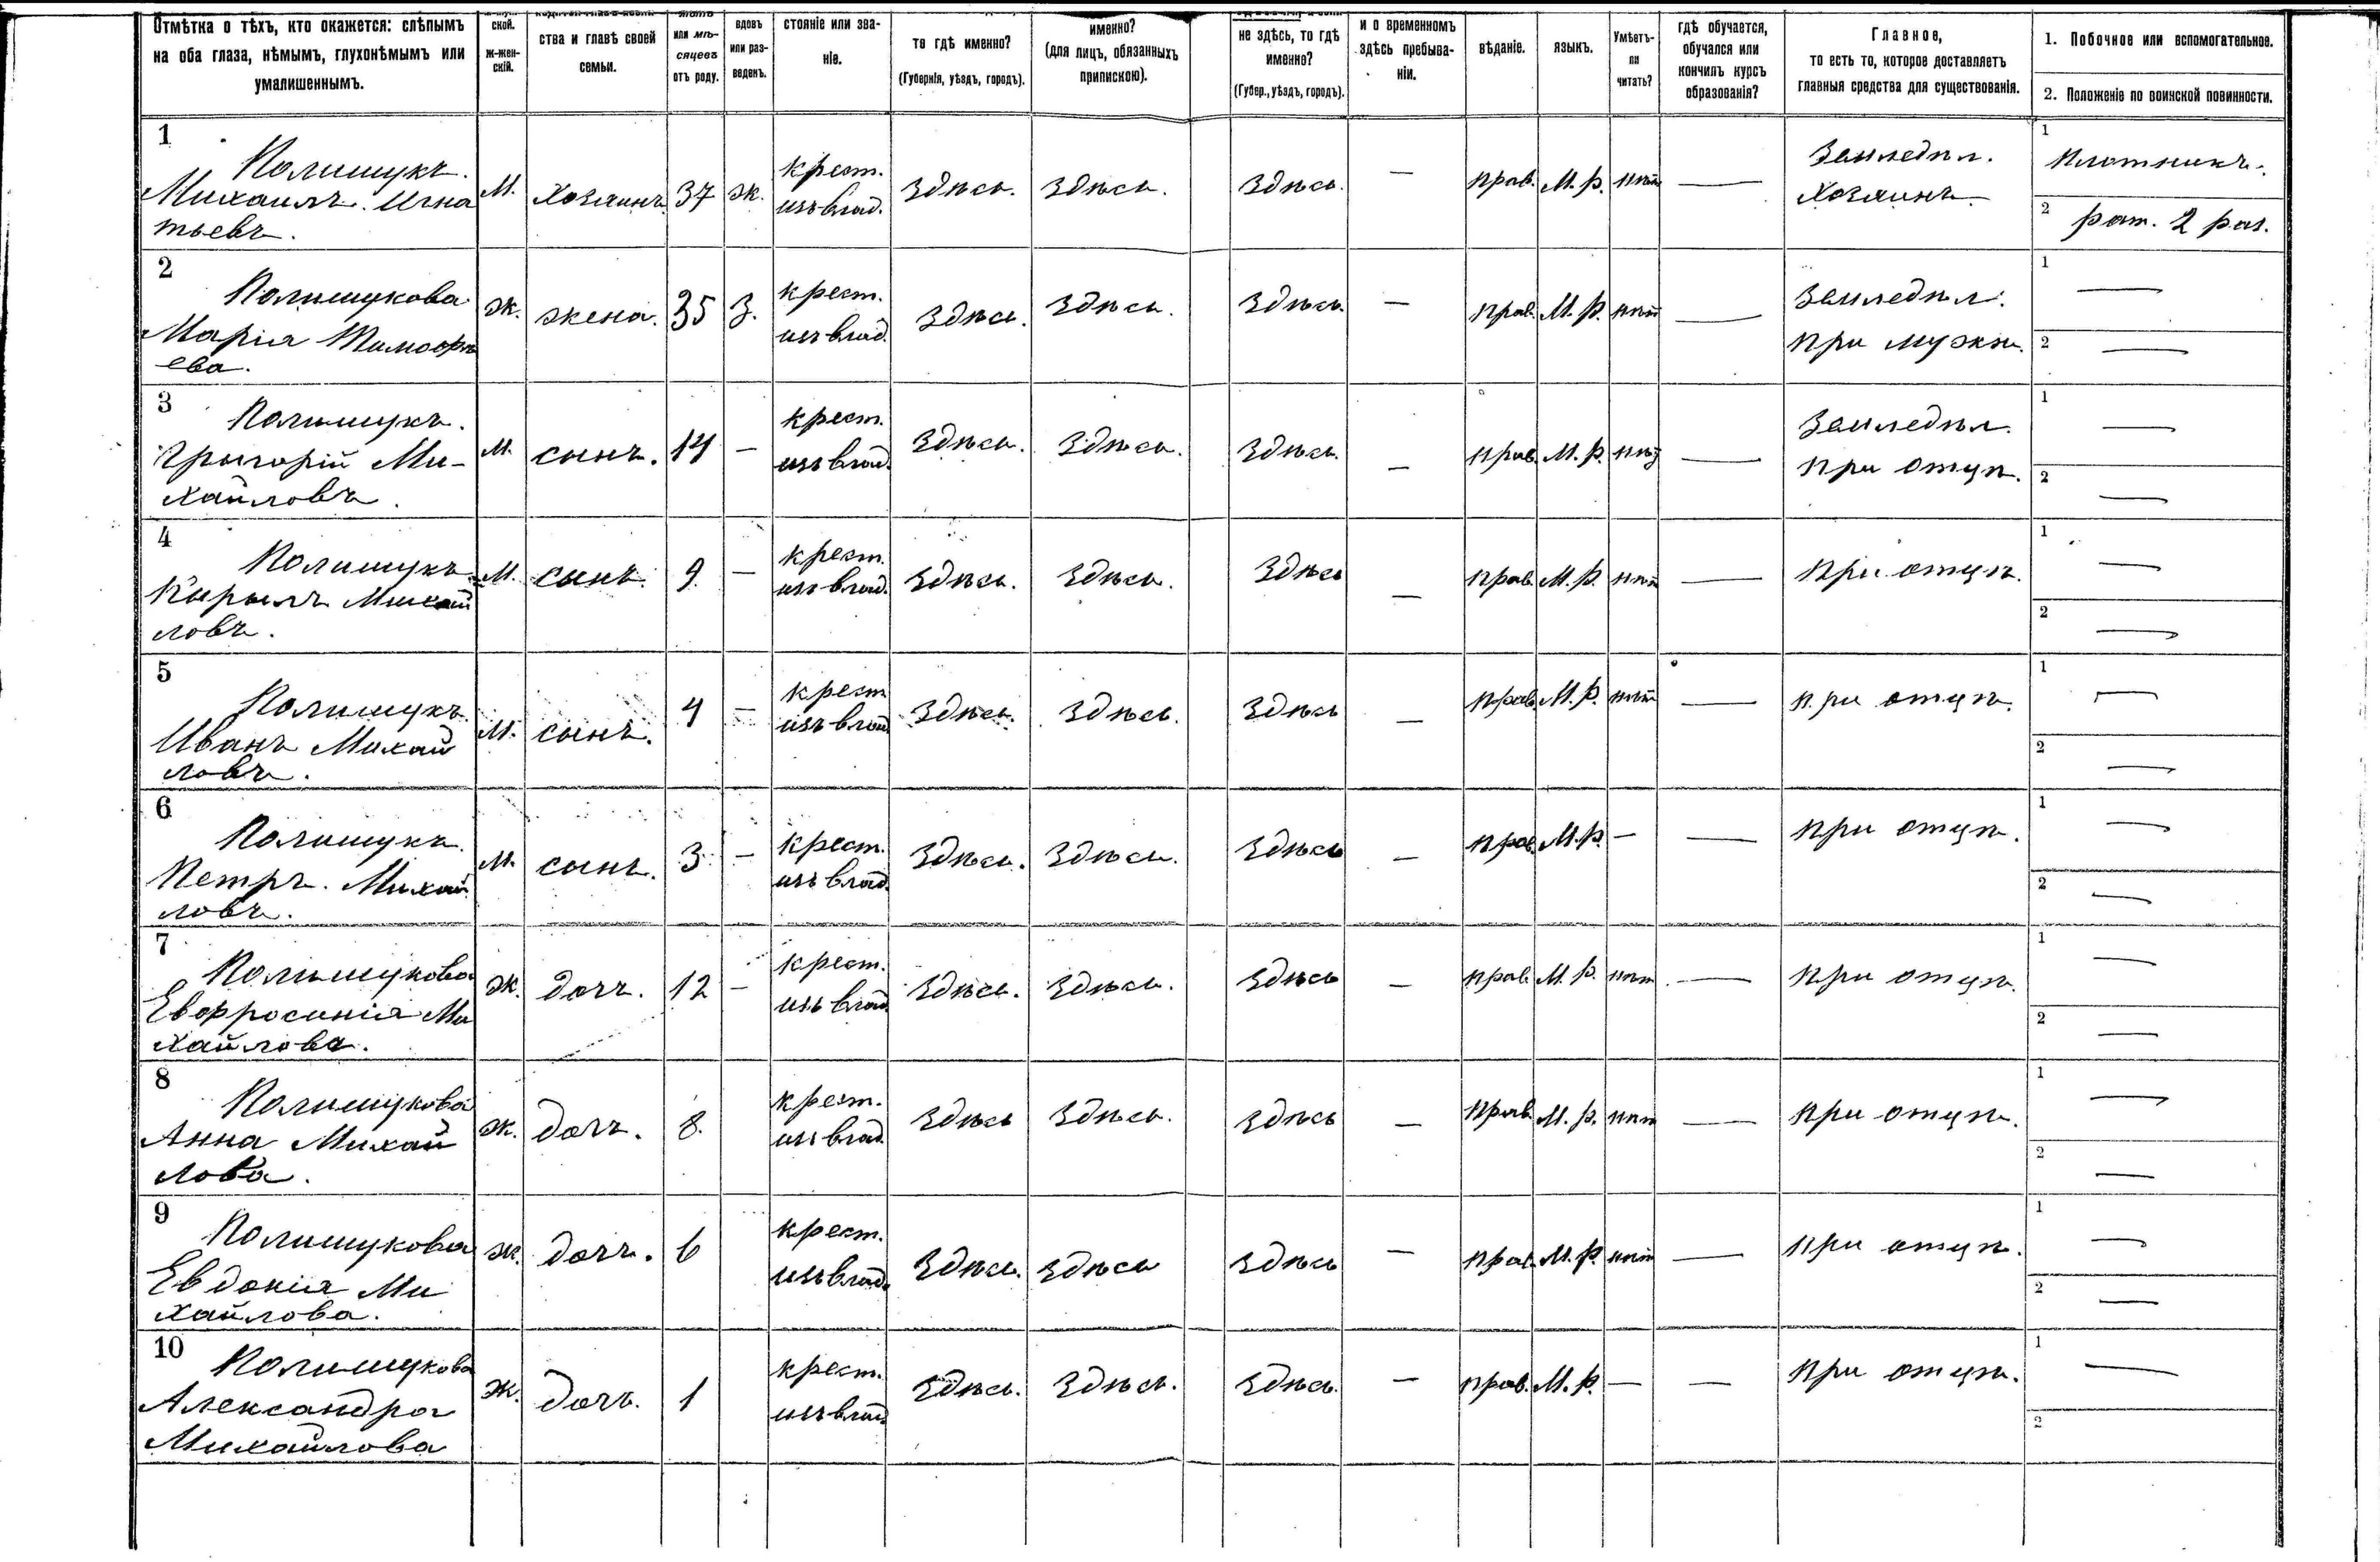 Отмѣтка о тѣхъ, кто окажется: слѣпымъ
на оба глаза, нѣмымъ, глухонѣмымъ или
умалишеннымъ.
ской.
ж-жен-
скій.
ства и главѣ своей
семьи.
или мѣ-
сяцевъ
отъ роду.
вдовъ
или раз-
веденъ.
стояніе или зва-
ніе.
то гдѣ именно?
(Губернія, уѣздъ, городъ).
именно?
(для лицъ, обязанныхъ
припискою).
не здѣсь, то гдѣ
именно?
(Губер., уѣздъ, городъ).
и о временномъ
здѣсь пребыва-
ніи.
вѣданіе.
языкъ.
Умѣетъ-
ли
читать?
гдѣ обучается,
обучался или
кончилъ курсъ
образованія?
Главное,
то есть то, которое доставляетъ
главныя средства для существованія.
1. Побочное или вспомогательное.
2. Положеніе по воинской повинности.
1
Полишукъ.
Михаилъ Игна
тьевъ.
М. Хозяинъ 37 ж.
крест.
изъ влад.
Здѣсь. Здѣсь. Здѣсь. — прав. М. р. нѣт —
Земледѣл.
Хозяинъ.
1 Плотникъ.
2 рат. 2 раз.
2
Полишукова
Марія Тимофѣ
ева.
ж. жена. 35 З.
крест.
изъ влад.
Здѣсь. Здѣсь. Здѣсь. — прав. М. р. нѣт —
Земледѣл.
при мужѣ.
1 —
2 —
3
Полишукъ.
Григорій Ми-
хайловъ.
М. сынъ. 14 —
крест.
изъ влад.
Здѣсь. Здѣсь. Здѣсь. — прав. М. р. нѣт —
Земледѣл.
при отцѣ.
1 —
2 —
4
Полишукъ
Кирилъ Михай
ловъ.
М. сынъ. 9. —
крест.
изъ влад.
Здѣсь. Здѣсь. Здѣсь — прав. М. р. нѣт —
при отцѣ.
1 —
2 —
5
Полишукъ
Иванъ Михай
ловъ.
М. сынъ. 4 —
крест
изъ влад
Здѣсь. Здѣсь. Здѣсь — прав. М. р. нѣт —
при отцѣ.
1 —
2 —
6
Полишукъ.
Петръ. Михай
ловъ.
М. сынъ. 3 —
крест.
изъ влад.
Здѣсь. Здѣсь. Здѣсь — прав. М. р. — —
при отцѣ.
1 —
2 —
7
Полишукова
Евфросинія Ми
хайлова.
ж. дочь. 12 —
крест.
изъ влад.
Здѣсь. Здѣсь. Здѣсь — прав. М. р. нѣт —
при отцѣ.
1 —
2 —
8
Полишукова
Анна Михай
лова.
ж. дочь. 8.
крест.
изъ влад.
Здѣсь Здѣсь. Здѣсь — прав. М. р. нѣт —
при отцѣ.
1 —
2 —
9
Полишукова
Евдокія Ми
хайлова.
ж. дочь. 6
крест.
изъ влад.
Здѣсь. Здѣсь Здѣсь — прав. М. р. нѣт —
при отцѣ.
1 —
2 —
10
Полишукова
Александра
Михайлова
Ж. дочь. 1
крест.
изъ влад
Здѣсь. Здѣсь. Здѣсь. — прав. М. р. — —
при отцѣ.
1 —
2